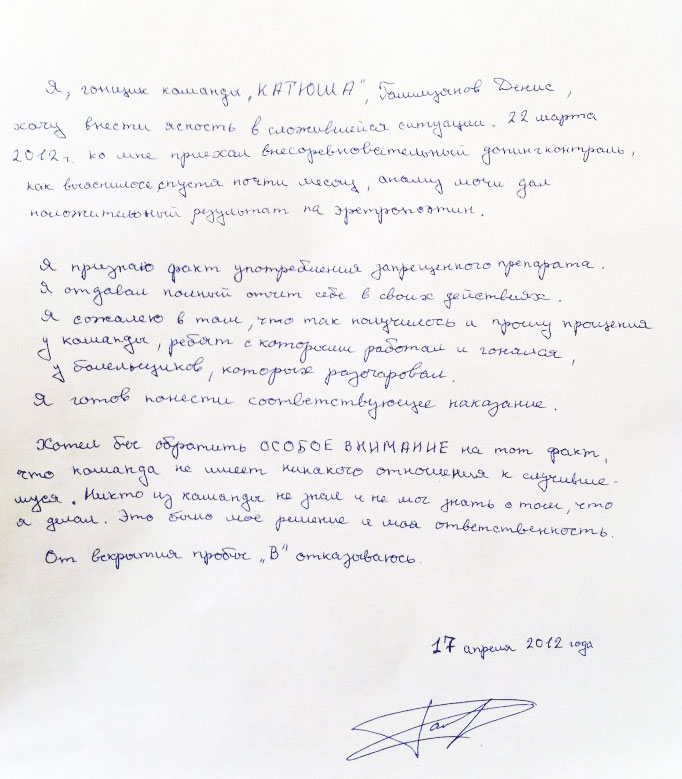 Я, гонщик команды „КАТЮША", Галимзянов Денис,
хочу внести ясность в сложившейся ситуации. 22 марта
2012 г. ко мне приехал внесоревновательный допингконтроль,
как выяснилось спустя почти месяц, анализ мочи дал
положительный результат на эретропоэтин.
Я признаю факт употребления запрещенного препарата.
Я отдавал полный отчет себе в своих действиях.
Я сожалею в том, что так получилось и прошу прощения
у команды, ребят с которыми работал и гонялся,
у болельщиков, которых разочаровал.
Я готов понести соответствующее наказание.
Хотел бы обратить ОСОБОЕ ВНИМАНИЕ на тот факт,
что команда не имеет никакого отношения к случивше-
муся. Никто из команды не знал и не мог знать о том, что
я делал. Это было моё решение и моя ответственность.
От вскрытия пробы „В" отказываюсь.
17 апреля 2012 года